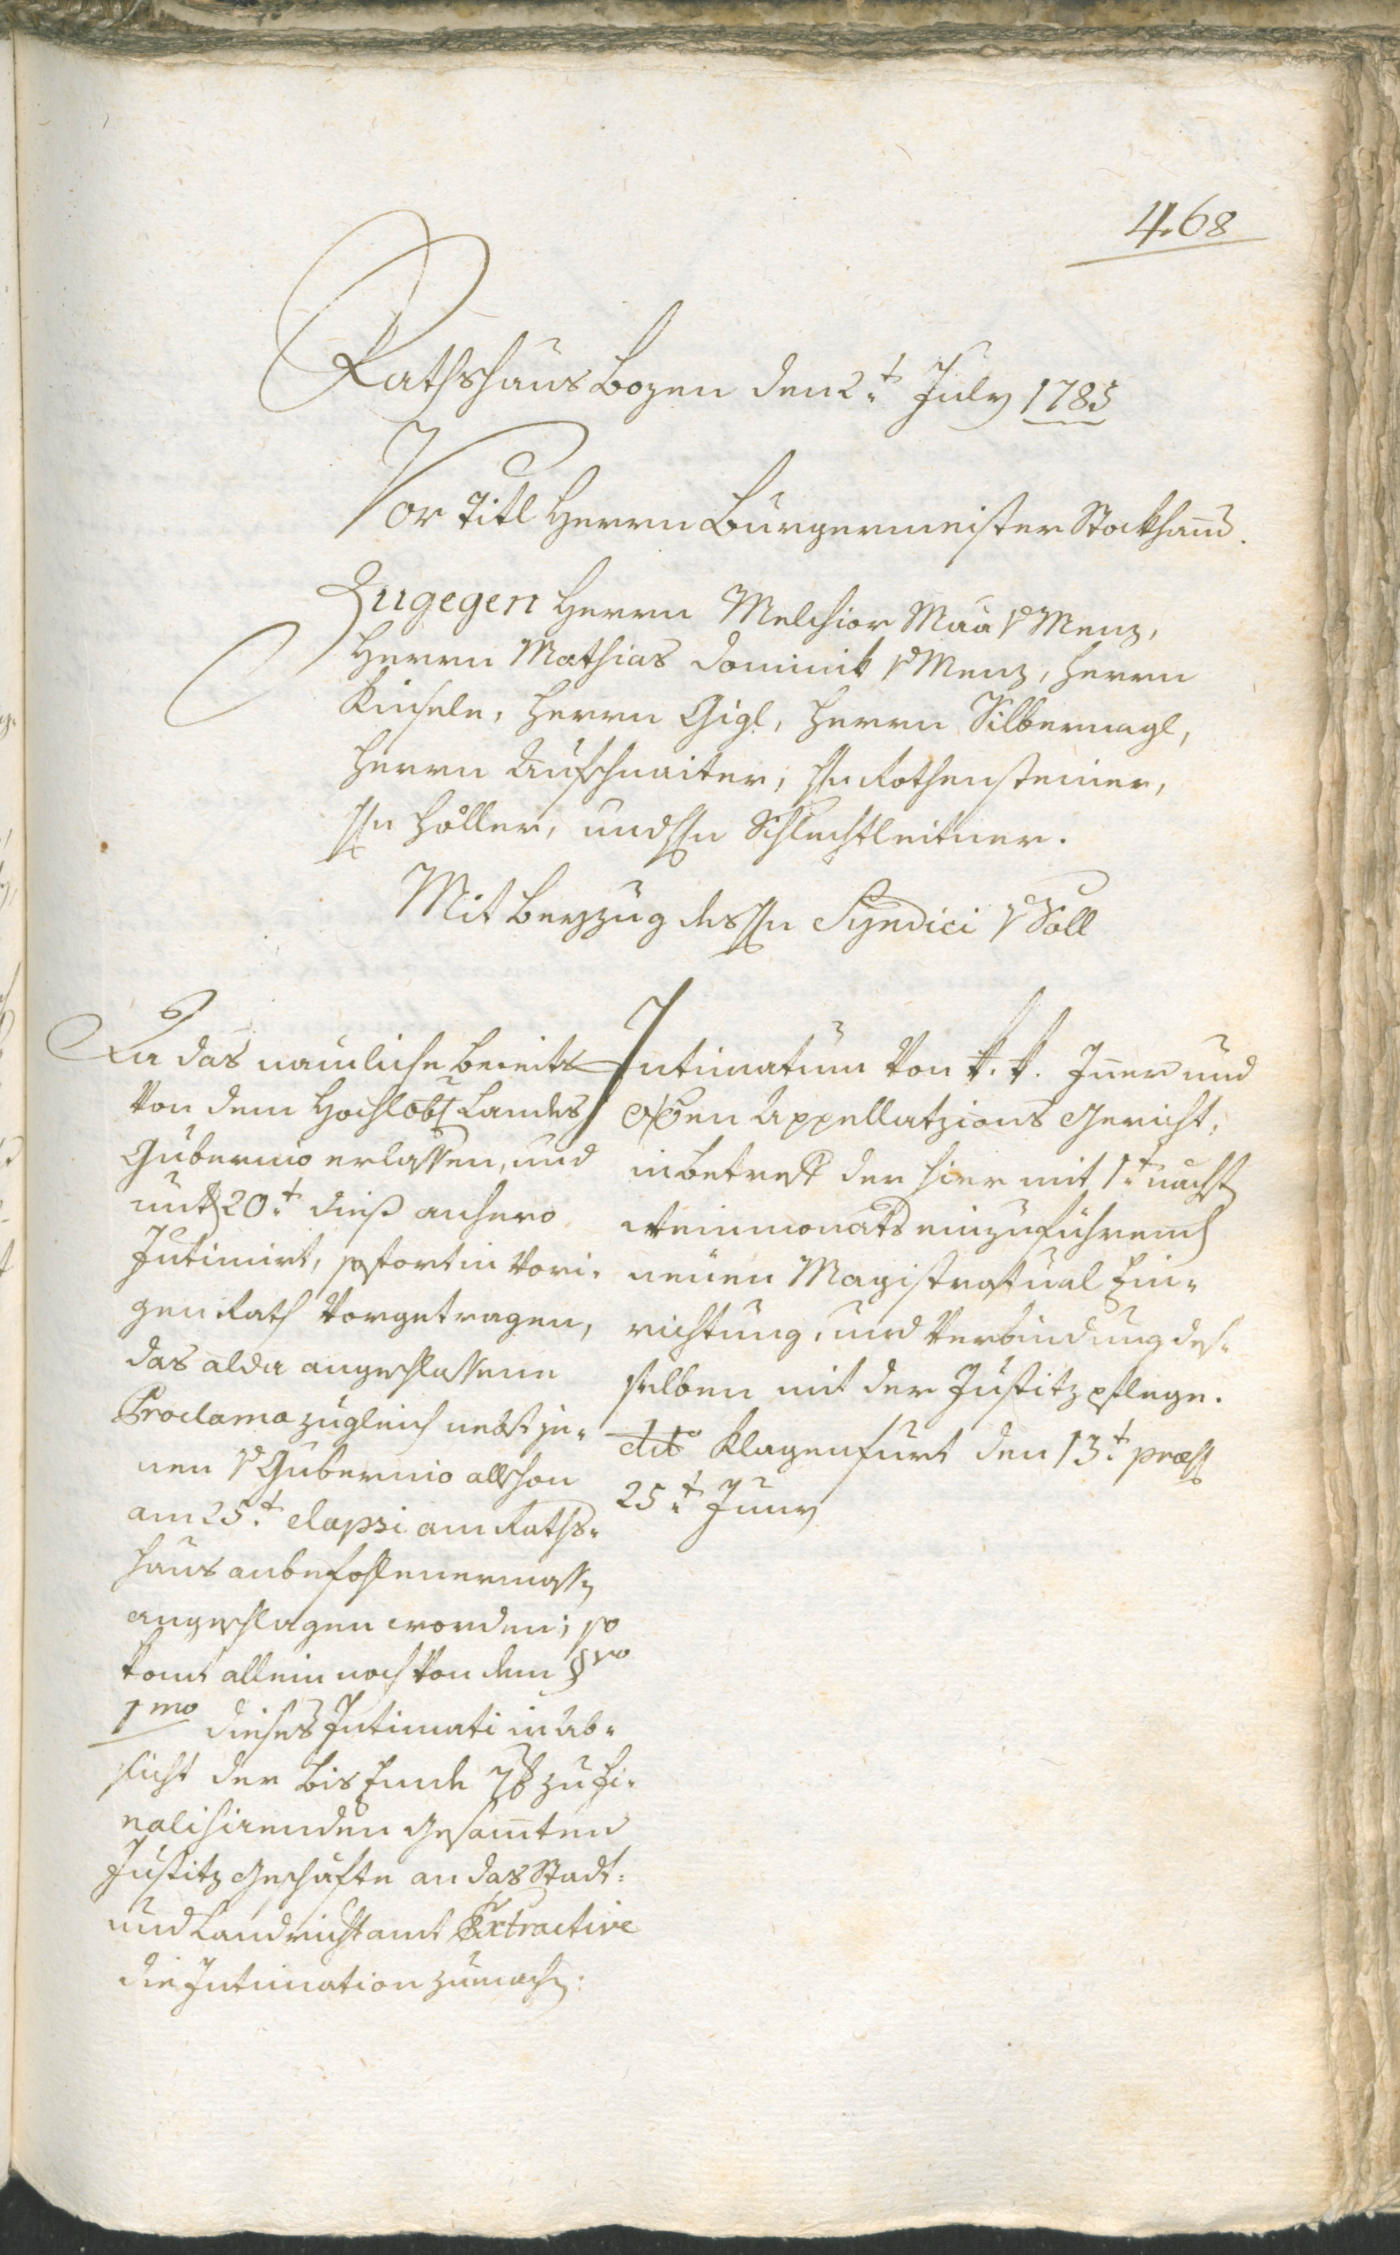 468
Rathshaus Bozen den 2.t July 1785
Vor Titl Herrn Bürgermeister Stockhamer.
Zugegen Herrn Melchior v Menz,
Herrn Mathias Dominik v Menz, Herrn
Kinsele, Herrn Gigl, Herrn Silbernagl,
Herrn Aufschnaiter, Hrn Rothensteiner,
Hrn Höller, und Hrn Schlechtleitner.
Mit Beyzug des Hrn Syndici v Söll
Da das nämliche bereits
von dem Hochlöbl Landes
Gubernio erlassen, und
unterm 20.t dieß anhero
Intimirt, sofort in vori-
gen Rath vorgetragen,
das alda angeschlossene
Proclama zugleich nebst je-
nen v Gubernio allschon
am 25.t elapsi am Raths-
haus anbefohlenermassen
angeschlagen worden; so
komt allein noch von dem §vo
1mo dieses Intimati in Ab-
sicht der bis Ende 7b zu fi-
nalisirenden gesamten
Justitz Geschäfte an das Stadt-
und Landrichtamt Extractive
die Intimation zumachen.
Intimatum von k. k. Inner und
Oÿen Appellatzions Gericht,
in betreff der hier mit 1.t nächst
Weinmonats einzuführenden
neuen Magistratual Ein-
richtung, und Verbindung des-
selben mit der Justitzpflege.
dto Klagenfurt den 13.t præs
25.t Juny